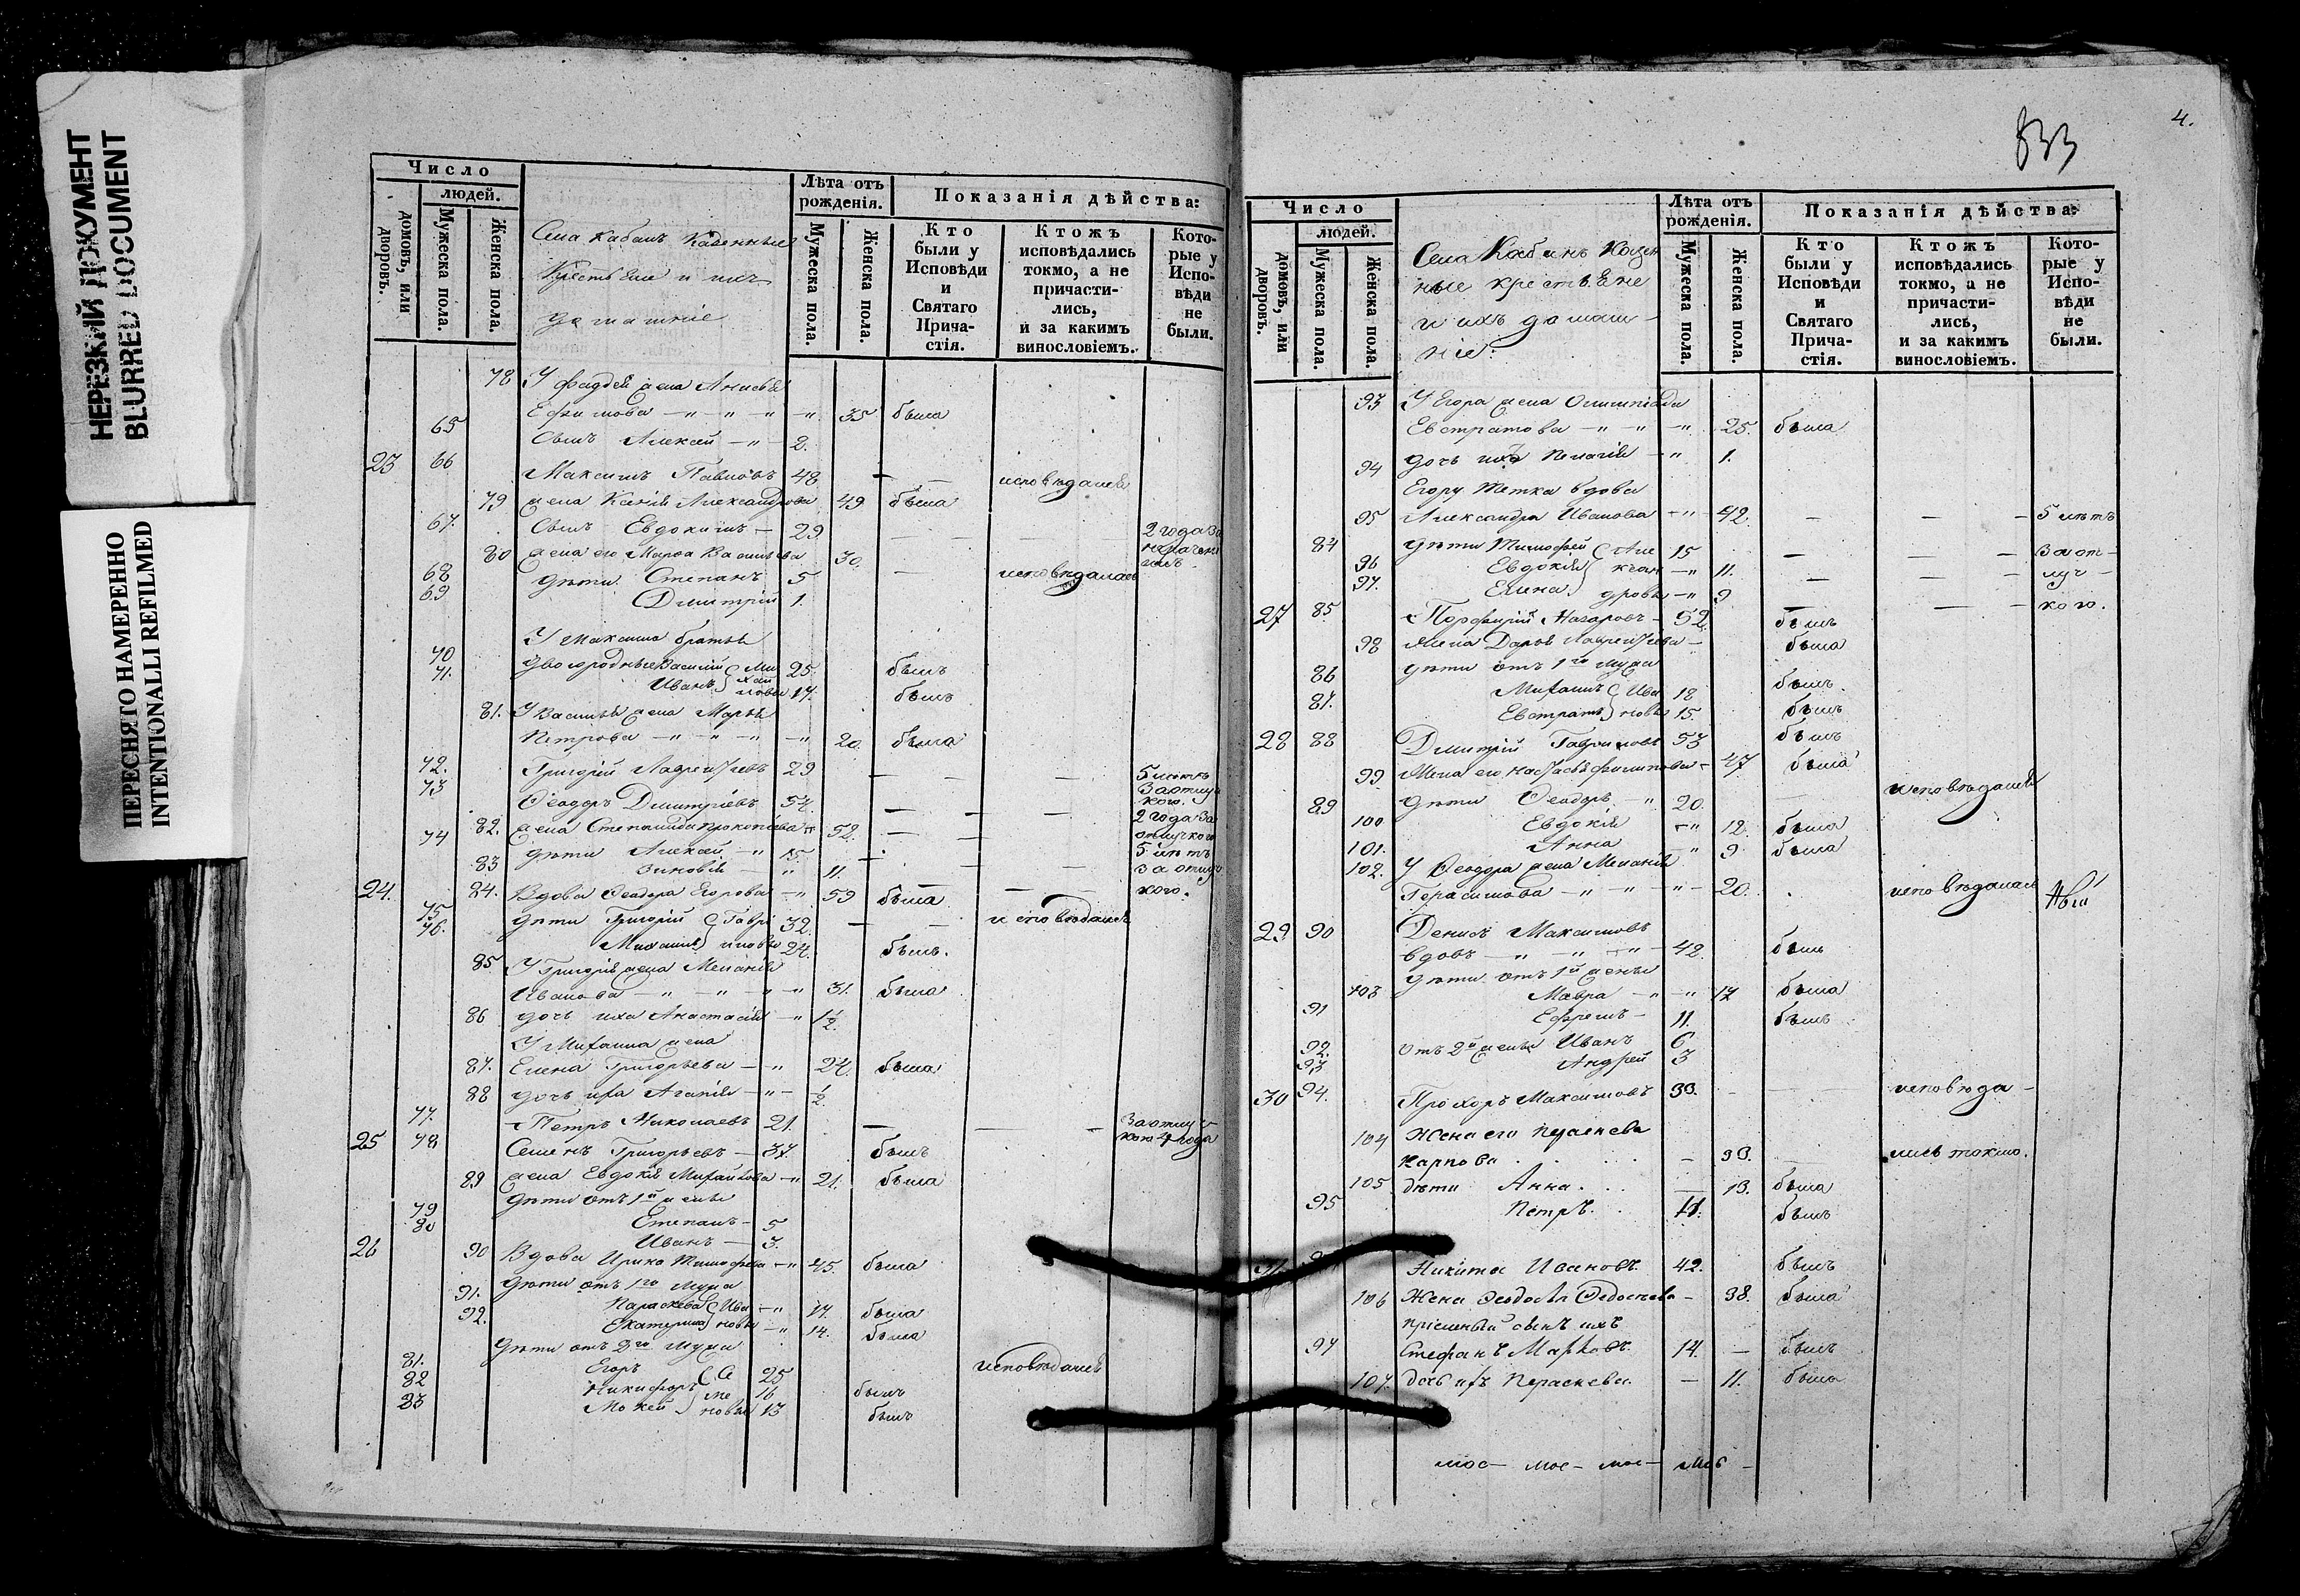 НЕРЕЗКИЙ ДОКУМЕНТ
BLURRED DOCUMENT
ПЕРЕСНЯТО НАМЕРЕННО
INTENTIONALLI REFILMED
Число
людей.
домовъ, или дворовъ.
Мужеска пола.
Женска пола.
Села Кабанъ Казенные
Крестьяне и ихъ
домашніе
Лѣта отъ рожденія.
Мужеска пола.
Женска пола.
Показанія дѣйства:
Кто были у Исповѣди и Святаго Прича-стія.
Ктожъ исповѣдались токмо, а не причасти-лись, и за какимъ винословіемъ.
Кото-рые у Испо-вѣди не были.
78 У Фаддея жена Анисья
Ефимова — " — " — " — " 35 была
65 Сынъ Алексей — " — 2.
23 66 Максимъ Павловъ 48 — — исповѣдался
79 жена Ксенія Александрова 49 была
67. Сынъ Евдокимъ — 29 — — — 2 года за
80 жена его Марѳа Васильева 30. — исповѣдалась
68 дѣти Степанъ 5
69 Димитрій 1.
У Максима братья
70 двоюродные Василій Ми 25. былъ
71. Иванъ хай ловы 17. былъ
81. У Василья жена Марья
Петрова — " — " — " — " 20. была
72. Григорій Лаврентьевъ 29 — — — 5 лѣтъ
73 Ѳеодоръ Димитріевъ 54. — — — 2 года за
82. жена Степанида Прокопіева — " 52. — — отлучкою
74 дѣти Алексей — " 15. — — 5 лѣтъ
83 Зиновія — " 11. — — — за отлуч
24. 84. Вдова Ѳеодора Егорова — " 59 была кою.
75 дѣти Григорій Гаври 32. — — исповѣдался
76. Михаилъ иловы 24. былъ.
85 У Григорія жена Меланія
Иванова — " — " — " — " 31. была
86 дочь ихъ Анастасія — " 1½
У Михаила жена
87. Елена Григорьева — " 24. была
88 дочь ихъ Агаѳія — " — ½
77. Петръ Николаевъ 21. — — — За отлуч
25 78 Семенъ Григорьевъ — 37. былъ
89 жена Евдокія Михайлова — " 21. была
дѣти отъ 1й жены
79 Степанъ — 5
80 Иванъ — 3.
26 90 Вдова Ирина Тимофеева — " 45. была
дѣти отъ 1го мужа
91. Параскева Ива — " 17. была
92. Екатерина новы — " 14. была
дѣти отъ 2го мужа
81. Егоръ Се 25 исповѣдался
82 Никифоръ ме 16 былъ
83 Мокей новы 13 былъ
833
4.
Число
людей.
домовъ, или дворовъ.
Мужеска пола.
Женска пола.
Села Кабанъ Казен
ные крестьяне
и ихъ домаш-
ніе.
Лѣта отъ рожденія.
Мужеска пола.
Женска пола.
Показанія дѣйства:
Кто были у Исповѣди и Святаго Прича-стія.
Ктожъ исповѣдались токмо, а не причасти-лись, и за какимъ винословіемъ.
Кото-рые у Испо-вѣди не были.
93 У Егора жена Олимпіада
Евстратова — " — " — " 25. была
94 дочь ихъ Пелагія — " 1.
Егору Тетка вдова
95 Александра Иванова — " — 42. — — — 5 лѣтъ
84 дѣти Тимофей Але 15 — — — за от-
96 Евдокія ксан — " 11. — — — луч-
97. Елена дровы — " 9 — — — кою.
27 85. Порфирій Назаровъ — 52. былъ
98 жена Дарья Лаврентьева — была
дѣти отъ 1го мужа
86 Михаилъ Ива 18 былъ.
87. Евстратъ новы 15. былъ
28 88 Димитрій Гавриловъ 53 былъ
99 Жена его Настасья Филипова — 47 была
89 дѣти Ѳеодоръ — " 20. исповѣдался
100 Евдокія — " 12. была
101. Анна — " 9 была
102. У Ѳеодора жена Меланія
Герасимова — " — " — " 20. исповѣдалась
29 90 Денисъ Максимовъ
вдовъ — " — " — " — 42. былъ
дѣти отъ 1й жены
103 Мавра — " — " 17 была
91 Ефремъ — 11. былъ
92. отъ 2й жены Иванъ 6
93 Андрей 3
30 94. Прохоръ Максимовъ 33. — исповѣда-
104 Жена его Параскева
Карпова — 33. лись токмо.
105 дѣти Анна — 13. была
95 Петръ 11. былъ
Никита Ивановъ 42. былъ
106 Жена Ѳеодосья — 38. была
пріемный сынъ ихъ
97 Стефанъ Марковъ. 14. — былъ
107. дочь ихъ Параскева — 11. была